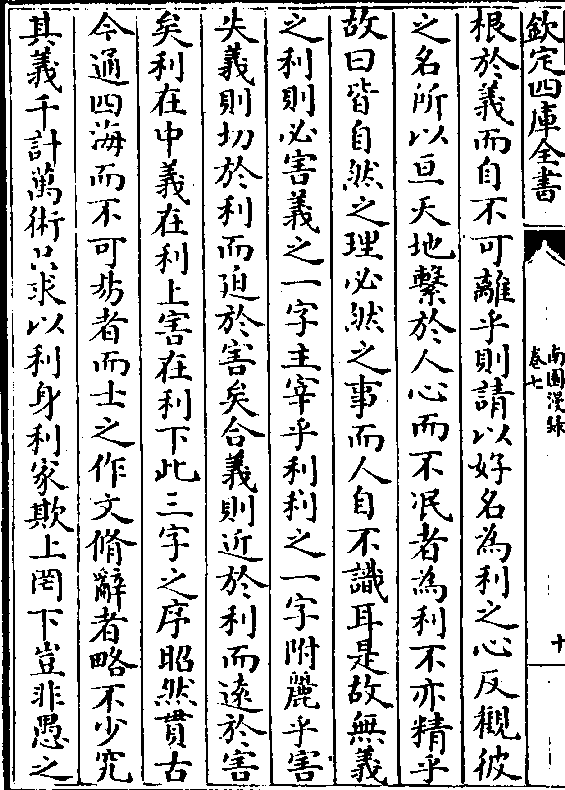 欽定四庫全書
南園漫録
卷七
十
根於義而自不可離乎則請以好名為利之心反觀彼
之名所以亘天地繫於人心而不冺者為利不亦精乎
故曰皆自然之理必然之事而人自不識耳是故無義
之利則必害義之一字主宰乎利利之一字附麗乎害
失義則切於利而迫於害矣合義則近於利而遠於害
矣利在中義在利上害在利下此三字之序昭然貫古
今通四海而不可易者而士之作文脩辭者略不少究
其義千計萬術只求以利身利家欺上罔下豈非愚之